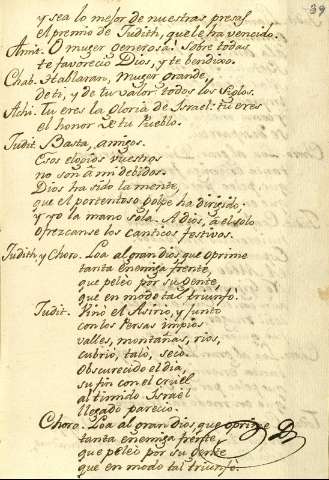 39
y sea lo mejor de nuestras presas
el premio de Judith, que le ha vencido.
Amit. O muger generosa! sobre todas
te favorecio Dios, y te bendixo.
Chab. Hablaran, muger grande,
de ti, y de tu valor todos los siglos.
Achi. Tu eres la gloria de Israel: tu eres
el honor de tu Pueblo.
Judit. Basta, amigos.
Esos elogios vuestros
no son â mi debidos.
Dios ha sido la mente,
que el portentoso golpe ha dirigido:
y yo la mano sola. A Dios, â el solo
ofrezcanse los canticos festivos.
Judith, y Choro. Loa al gran dios, que oprime
tanta enemiga frente,
que peleó por su gente,
que en modo tal triunfó.
Judit. Vino el Asirio, y junto
con los Persas impios
valles, montañas, rios,
cubrió, taló, secó.
Obscurecido el dia,
su fin con el cruel
al timido Israel
llegado pareció.
Choro. Loa al gran dios, que oprime
tanta enemiga frente,
que peleó por su gente
que en modo tal triunfó.